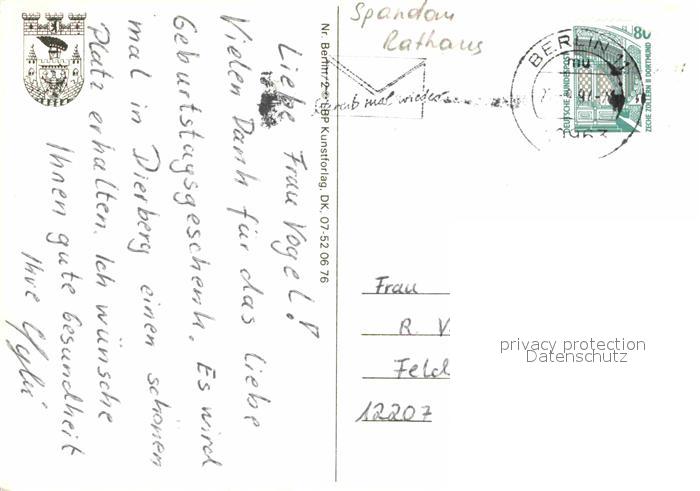 Liebe Frau Vogel!
Vielen Dank für das liebe
Geburtstagsgeschenk. Es wird
mal in Dierberg einen schönen
Platz erhalten. Ich wünsche
Ihnen gute Gesundheit
Ihre
Nr. Berlin/2 © LBP Kunstforlag, DK, 07-52 06 76
Spandau
Rathaus
Schreib mal wieder
BERLIN 11
80
DEUTSCHE BUNDESPOST
ZECHE ZOLLERN II DORTMUND
Frau
R. V.
Feld
12207
privacy protection
Datenschutz